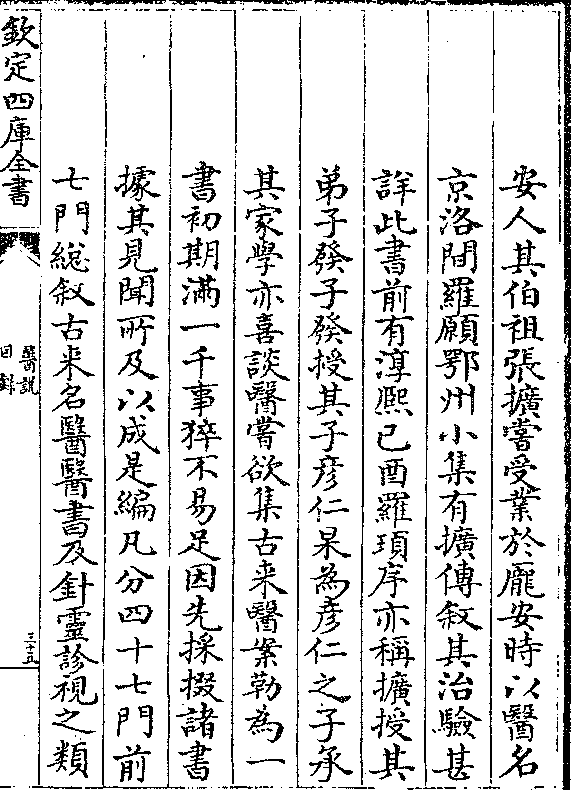 安人其伯祖張擴嘗受業於龐安時以醫名
京洛間羅願鄂州小集有擴傳敘其治驗甚
詳此書前有淳熙己酉羅頊序亦稱擴授其
弟子發子發授其子彦仁杲為彦仁之子承
其家學亦喜談醫嘗欲集古来醫案勒為一
書初期滿一千事猝不易足因先採掇諸書
據其見聞所及以成是編凡分四十七門前
七門總敘古来名醫醫書及針靈診視之類
欽定四庫全書
醫說
目錄
三十五